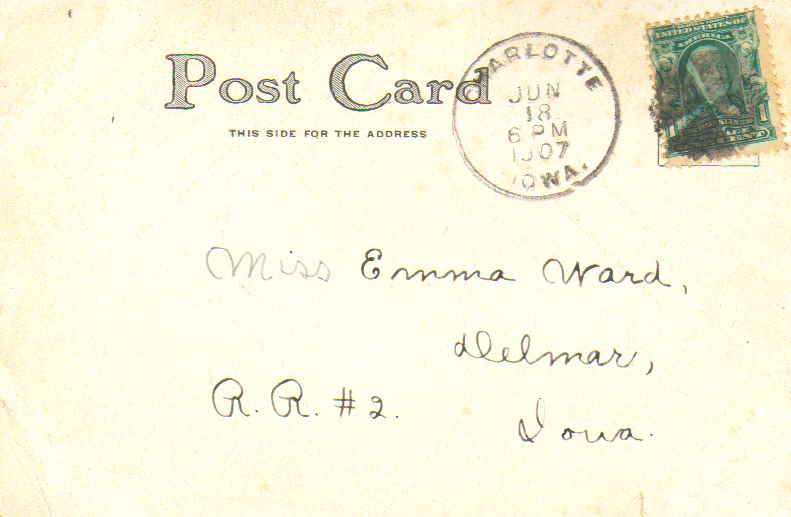 Post Card
THIS SIDE FOR THE ADDRESS
CHARLOTTE
JUN
18
6 PM
1907
IOWA.
UNITED STATES OF
AMERICA
1
1
CENT
Miss Emma Ward,
Delmar,
R. R. #2.
Iowa.